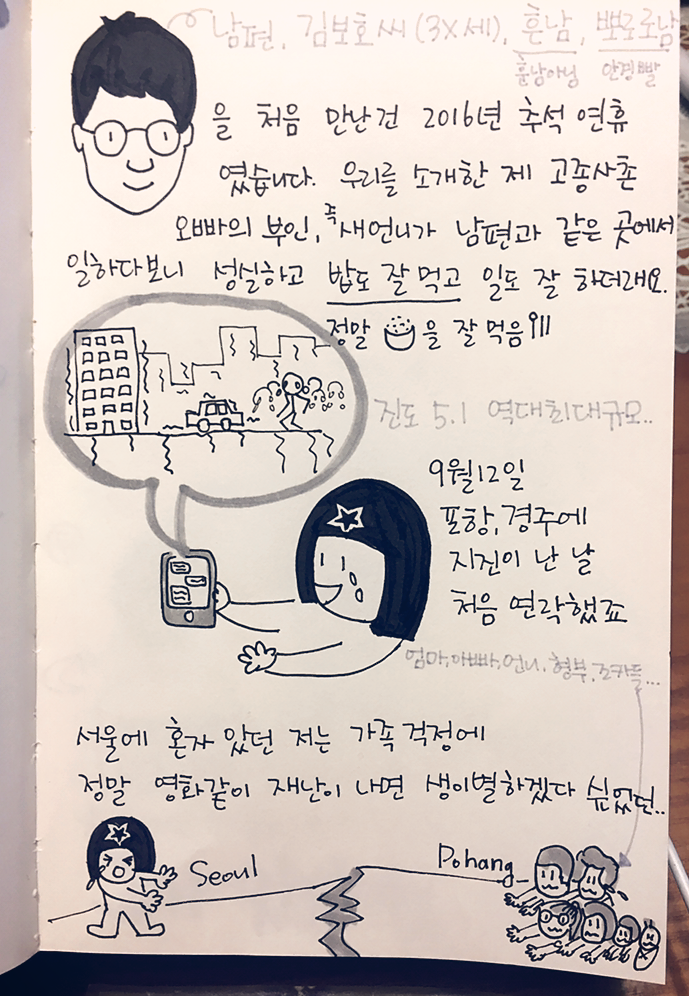 남편, 김보호씨(3X세), 흔남, 뽀로로남
훈남아님 안경빨
을 처음 만난건 2016년 추석 연휴
였습니다. 우리를 소개한 제 고종사촌
오빠의 부인, 즉 새언니가 남편과 같은 곳에서
일하다보니 성실하고 밥도 잘 먹고 일도 잘 하더래요.
정말 을 잘 먹음!!!
진도 5.1 역대최대규모..
9월12일
포항, 경주에
지진이 난 날
처음 연락했죠
엄마, 아빠, 언니, 형부, 조카들...
서울에 혼자 있던 저는 가족 걱정에
정말 영화같이 재난이 나면 생이별하겠다 싶었던..
Seoul
Pohang